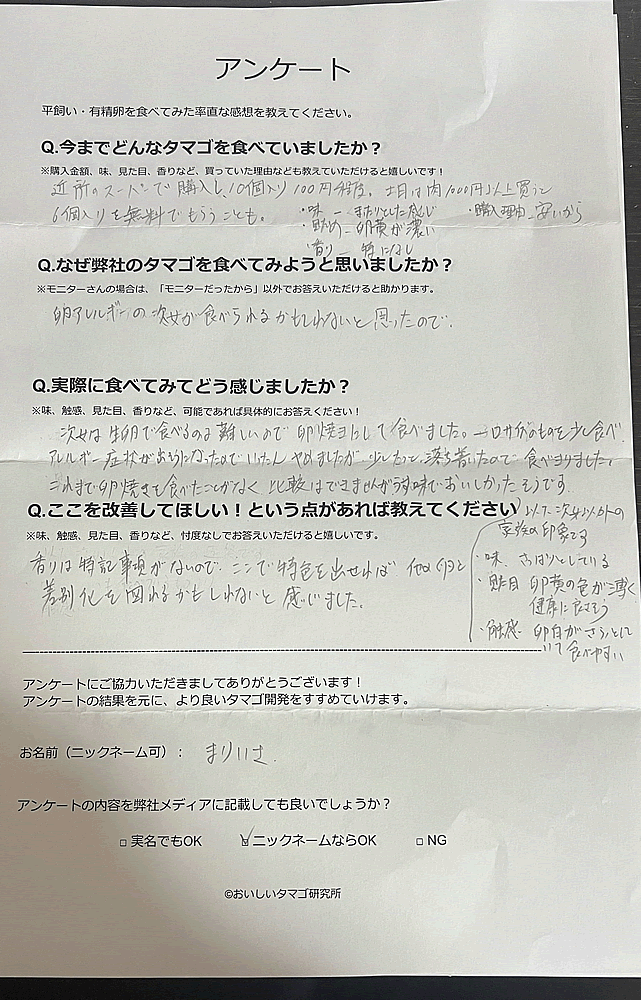 アンケート
平飼い・有精卵を食べてみた率直な感想を教えてください。
Q.今までどんなタマゴを食べていましたか？
※購入金額、味、見た目、香りなど、買っていた理由なども教えていただけると嬉しいです！
近所のスーパーで購入し、10個入り100円程度。土日は肉1000円以上買うと
6個入りを無料でもらうことも。
・味 — まったりとした感じ
・購入理由 — 安いから
・見た目 — 卵黄が濃い
・香り — 特になし
Q.なぜ弊社のタマゴを食べてみようと思いましたか？
※モニターさんの場合は、「モニターだったから」以外でお答えいただけると助かります。
卵アレルギーの次女が食べられるかもしれないと思ったので。
Q.実際に食べてみてどう感じましたか？
※味、触感、見た目、香りなど、可能であれば具体的にお答えください！
次女は生卵で食べるのは難しいので卵焼きにして食べました。一口サイズのものを少し食べ、
アレルギー症状がおきそうになったのでいったんやめましたが、少したって落ち着いたので食べきりました。
これまで卵焼きを食べたことがなく比較はできませんがうす味でおいしかったそうです。
Q.ここを改善してほしい！という点があれば教えてください
※味、触感、見た目、香りなど、忖度なしでお答えいただけると嬉しいです。
香りは特記事項がないので、ここで特色を出せれば他の卵と
差別化を図れるかもしれないと感じました。
以下、次女以外の
家族の印象です
・味 さっぱりとしている
・見た目 卵黄の色が薄く
健康に良さそう
・触感 卵白がさらっとして
いて食べやすい
アンケートにご協力いただきましてありがとうございます！
アンケートの結果を元に、より良いタマゴ開発をすすめていけます。
お名前（ニックネーム可）： まりいさ
アンケートの内容を弊社メディアに記載しても良いでしょうか？
□ 実名でもOK ☑ニックネームならOK □ NG
©おいしいタマゴ研究所